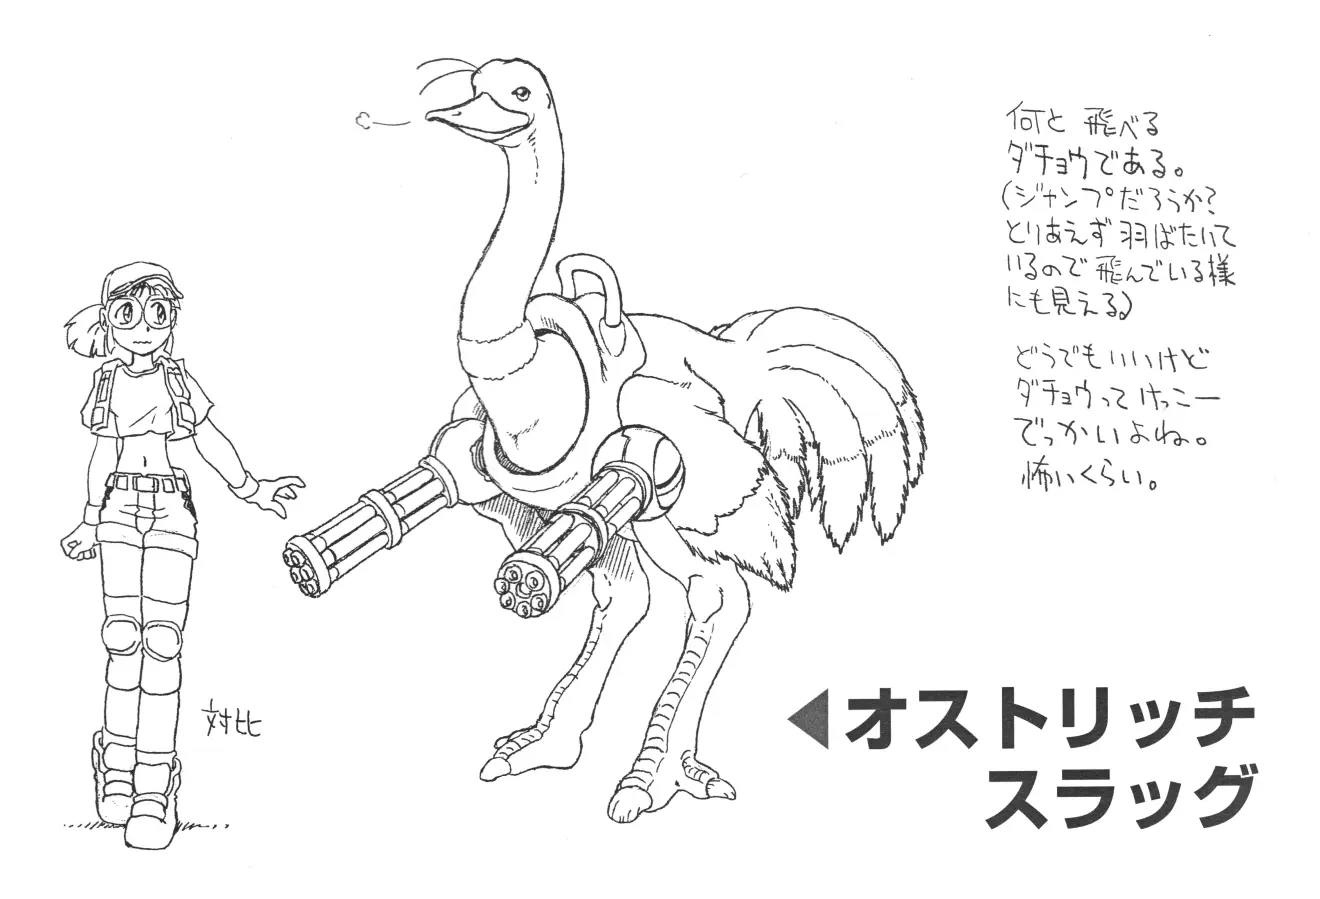 何と飛べる
ダチョウである。
(ジャンプだろうか?
とりあえず羽ばたいて
いるので飛んでいる様
にも見える)
どうでもいいけど
ダチョウってけっこー
でっかいよね。
怖いくらい。
対比
◀オストリッチ
スラッグ